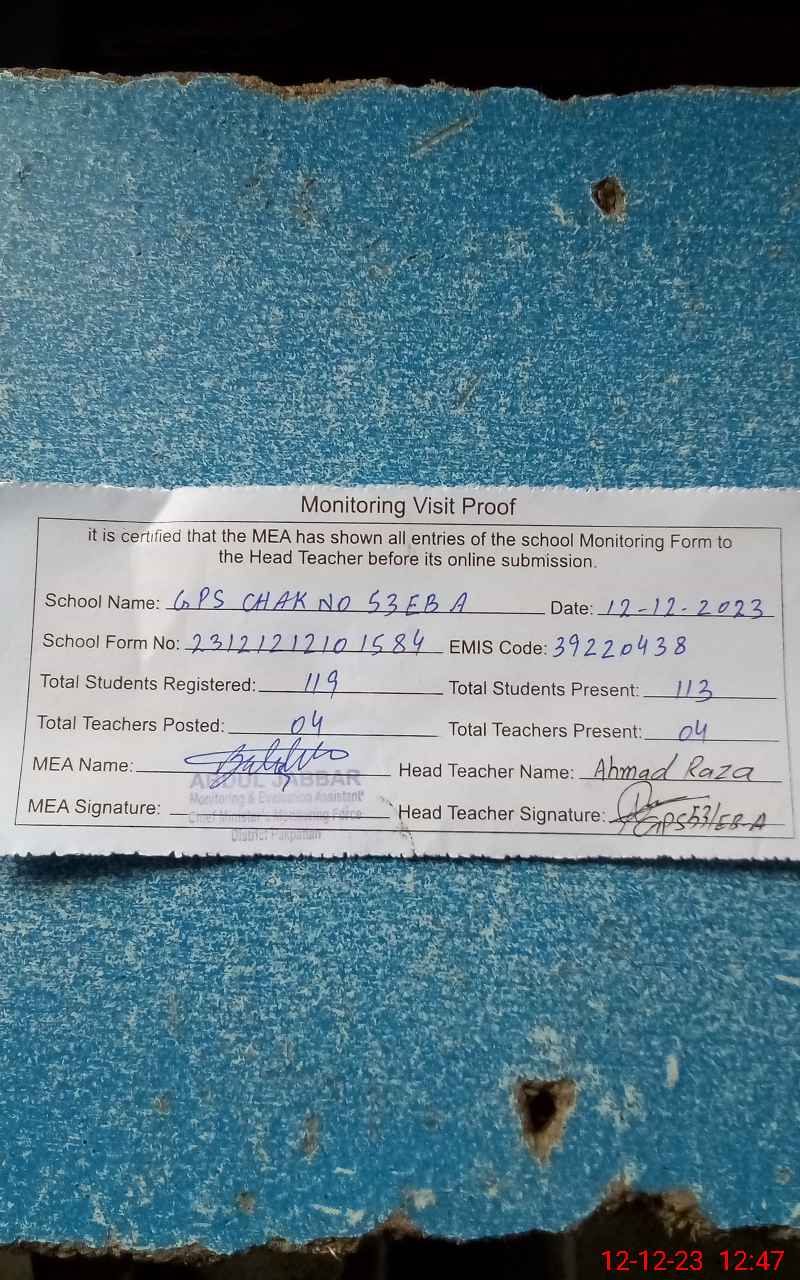 Monitoring Visit Proof
it is certified that the MEA has shown all entries of the school Monitoring Form to
the Head Teacher before its online submission.
School Name: GPS CHAK NO 53EB A Date: 12-12-2023
School Form No: 23121212101584 EMIS Code: 39220438
Total Students Registered: 119 Total Students Present: 113
Total Teachers Posted: 04 Total Teachers Present: 04
MEA Name: Head Teacher Name: Ahmad Raza
ABDUL JABBAR
Monitoring & Evaluation Assistant
MEA Signature: Head Teacher Signature: GPS53/EB-A
Chief Minister's Monitoring Force
District Pakpattan
12-12-23 12:47